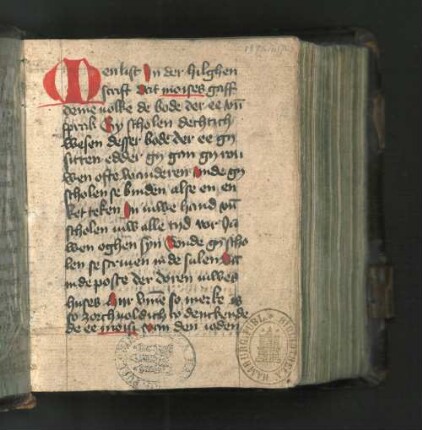 Men list In der hilghen
scrift dat moises gaff
deme volke de bode der ee vn̄
sprak Gy scholen dechtich
wesen desser bode der ee gy
sitten edder gy gan gy wa
ken ofte wanderen Unde gy
scholen se binden alse en en
ket teken In iuwe hand vn̄
scholen iuw alle tyd vor Ju
wen oghen syn Vnde gy scho
len se scriuen in de sulen
in de poste der doren iuwes
huses Hir vmme so merke is
so to denckende
de ee moisi van den ioden